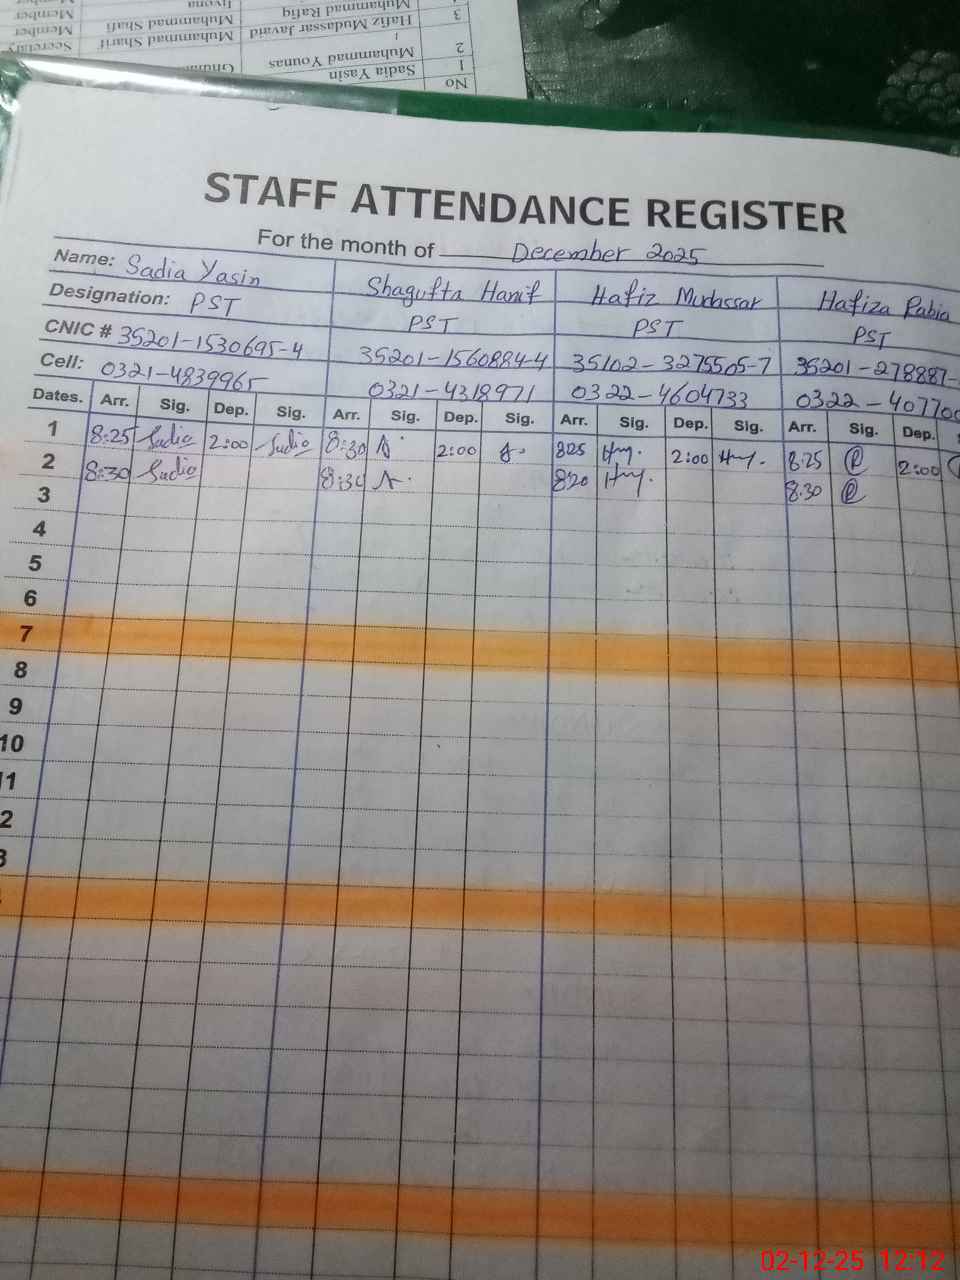 No
1 Sadia Yasin
2 Muhammad Younas
3 Hafiz Mudassar Javaid Muhammad Sharif Secretary
Muhammad Rafiq Muhammad Shafi Member
Member
STAFF ATTENDANCE REGISTER
For the month of December 2025
Name: Sadia Yasin Shagufta Hanif Hafiz Mudassar Hafiza Rabia
Designation: PST PST PST PST
CNIC # 35201-1530695-4 35201-1560884-4 35102-3275505-7 35201-278887-
Cell: 0321-4839965 0321-4318971 0322-4604733 0322-40770
Dates. Arr. Sig. Dep. Sig. Arr. Sig. Dep. Sig. Arr. Sig. Dep. Sig. Arr. Sig. Dep.
1 8:25 Sadia 2:00 Sadia 8:30 2:00 825 2:00 8.25 R 2:00
2 8:30 Sadia 8:30 820 8.30 R
3
4
5
6
7
8
9
10
11
2
3
02-12-25 12:12